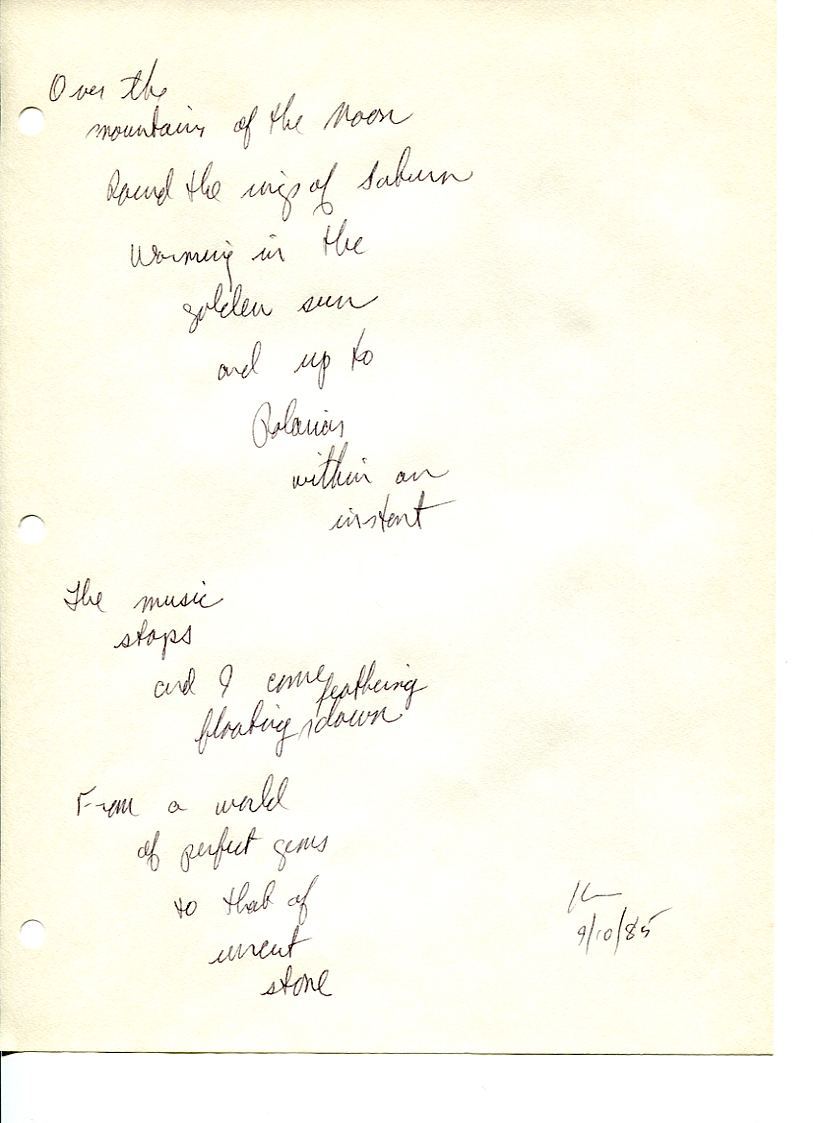 Over the
mountains of the Moon
Round the rings of Saturn
Warming in the
golden sun
and up to
Polarias
within an
instant
The music
stops
and I come feathering
floating down
From a world
of perfect gems
to that of
uncut
stone
9/10/85